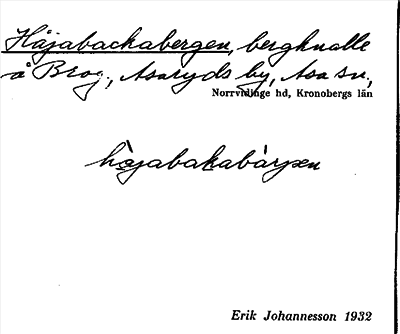 Håjabackabergen, bergknalle
å Brog., Asaryds by, Asa sn.,
Norrvidinge hd, Kronobergs län
håjabakabàrgen
Erik Johannesson 1932